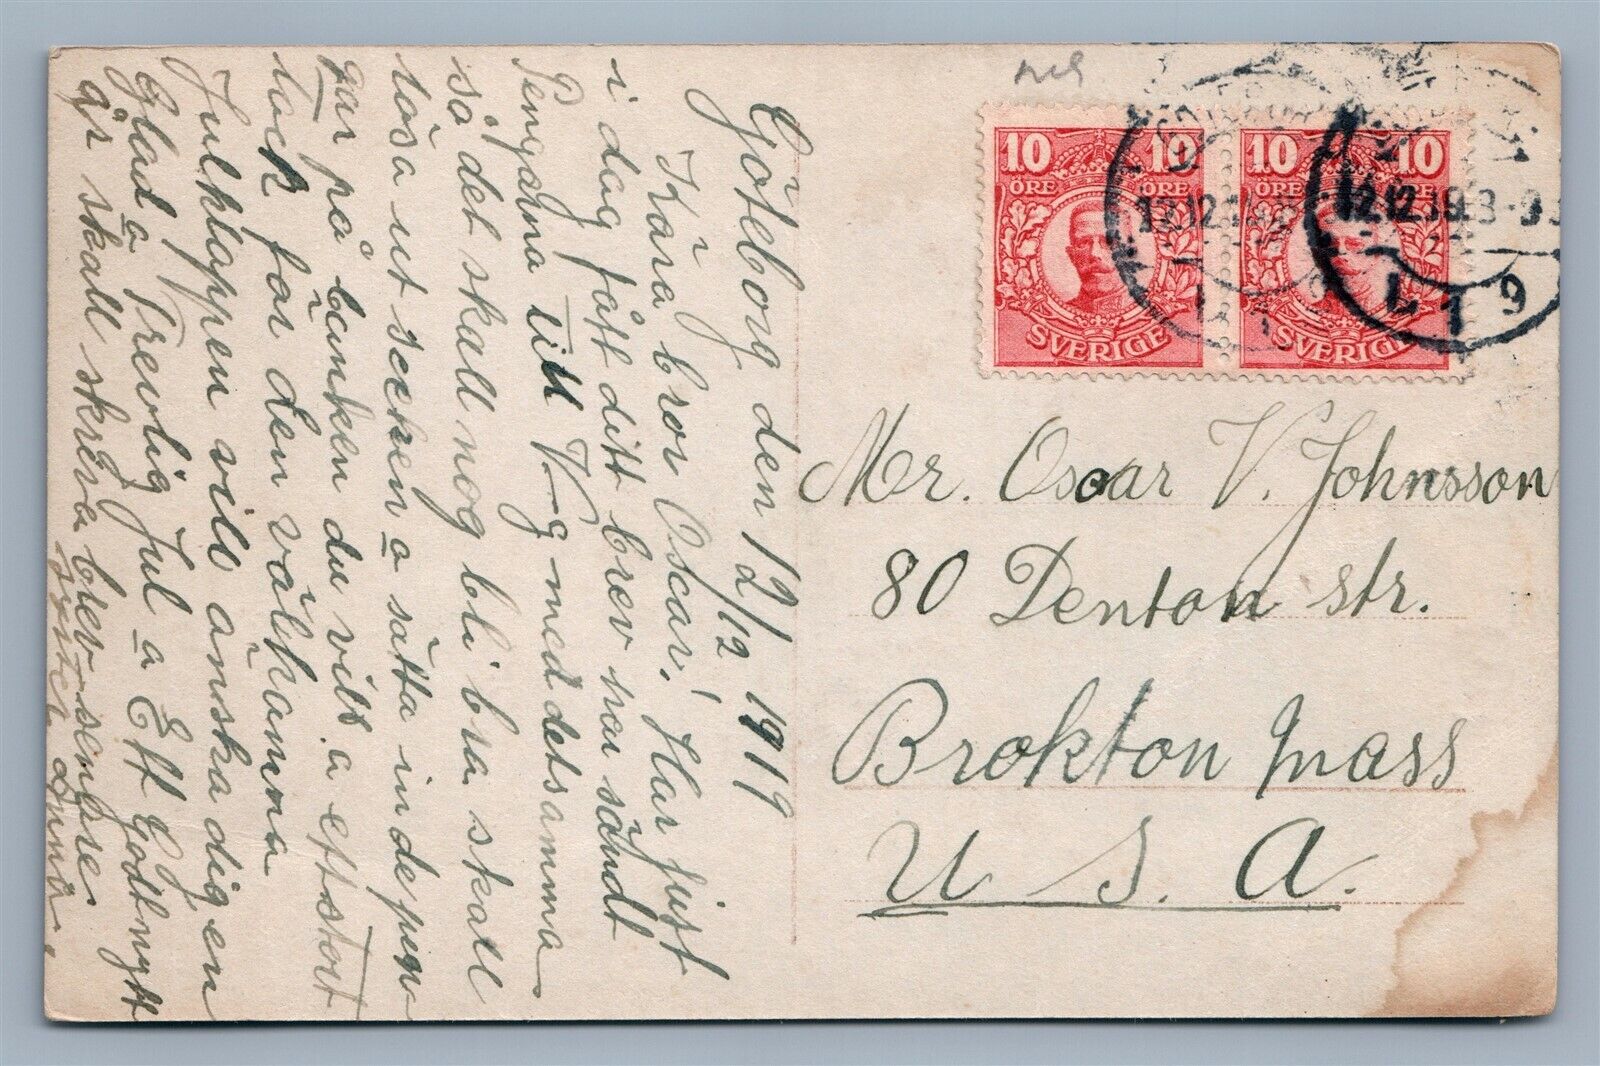 Göteborg den 12/12 1919
Kära bror Oscar! Har just
i dag fått ditt brev har sändt
Pengarna till V—g med detsamma
så det skall nog bli bra skall
lösa ut seeken o sätta in de pen
gar på bänken du vill. a ett stort
tack får den välkämna
Julklappen vill önska dig en
Glad o Trevlig Jul o Ett Godt nytt
år skall skriva brev senare
syster Anna.
10 10
ÖRE ÖRE
SVERIGE
10 10
ÖRE ÖRE
SVERIGE
12.12.19
12.12.19.3-9
L 1 9
Mr. Oscar V. Johnsson
80 Denton str.
Brokton Mass
U. S. A.